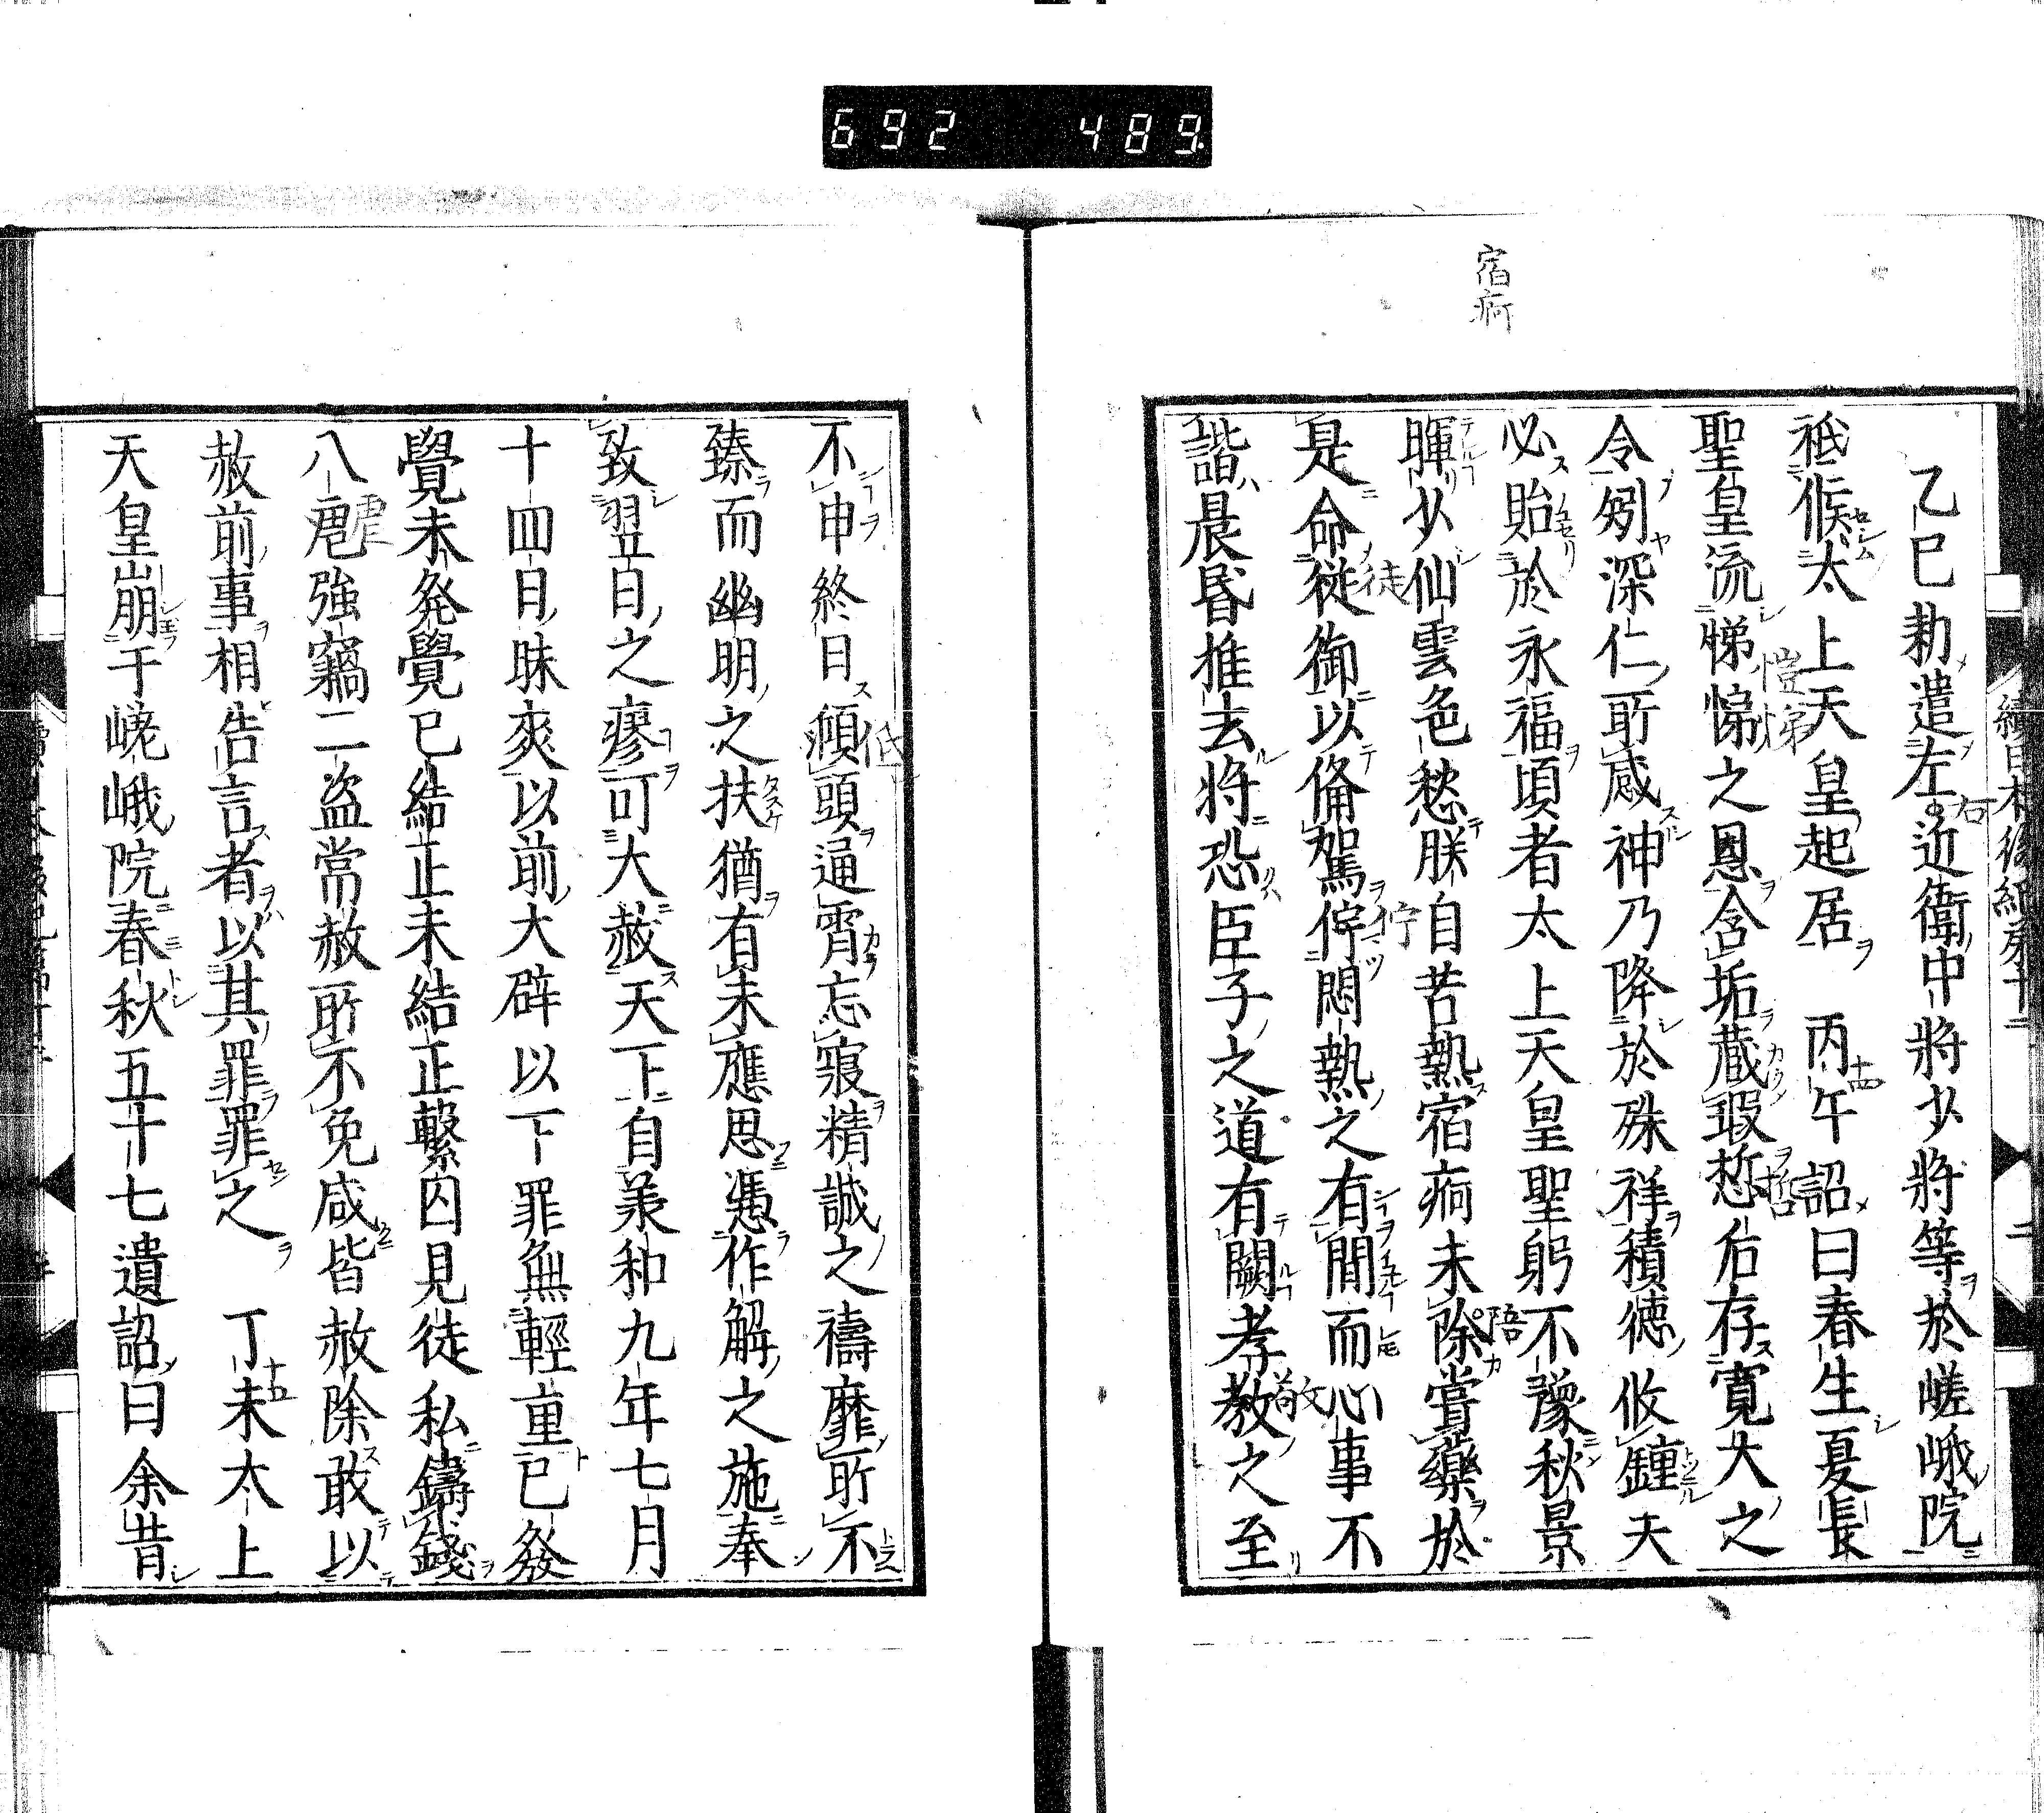 692 489
宿痾
乙巳勅遣左近衛中將少將等於嵯峨院
祗候太上天皇起居 丙午詔曰春生夏長
聖皇流悌愷之恩含垢蔵瑕悊后存寛大之
令矧深仁所感神乃降於殊祥積徳攸鍾天
必貽於永福頃者太上天皇聖躬不豫秋景
暉少仙雲色愁朕自苦熱宿痾未除嘗藥於
是命徙御以脩駕佇悶熱之有間而心事不
諧晨昏推去将恐臣子之道有闕孝教之至
不申終日傾頭通霄忘寢精誠之禱靡所不
臻而幽明之扶猶有未應思憑作解之施奉
致翌日之瘳可大赦天下自兼和九年七月
十四日昧爽以前大辟以下罪無輕重已發
覺未発覺已結正未結正繫囚見徒私鑄錢
八虐強竊二盗常赦所不免咸皆赦除敢以
赦前事相告言者以其罪罪之 丁未太上
天皇崩于嵯峨院春秋五十七遺詔曰余昔